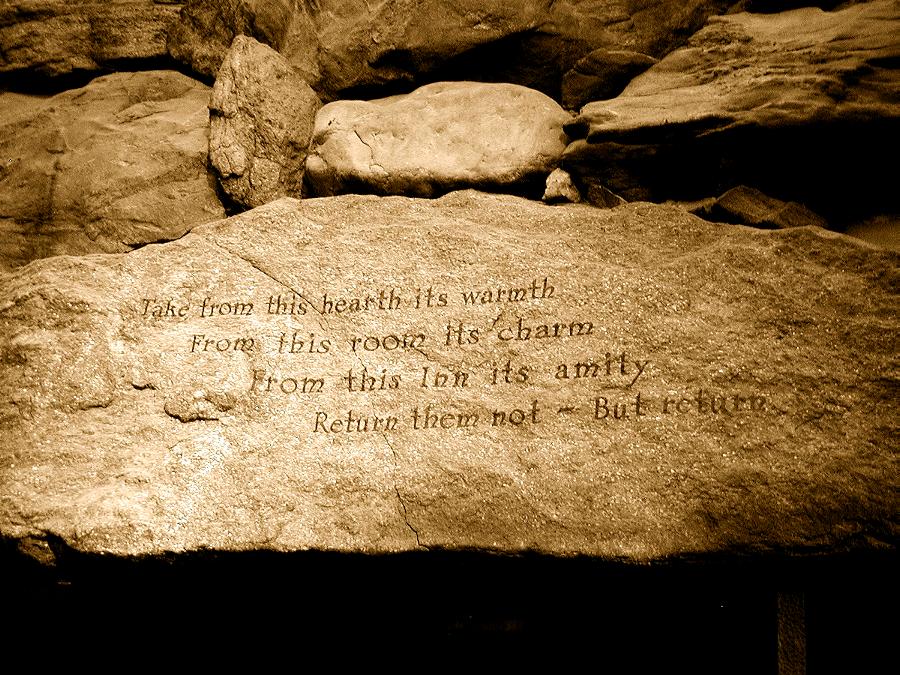 Take from this hearth its warmth
From this room its charm
From this Inn its amity
Return them not - But return